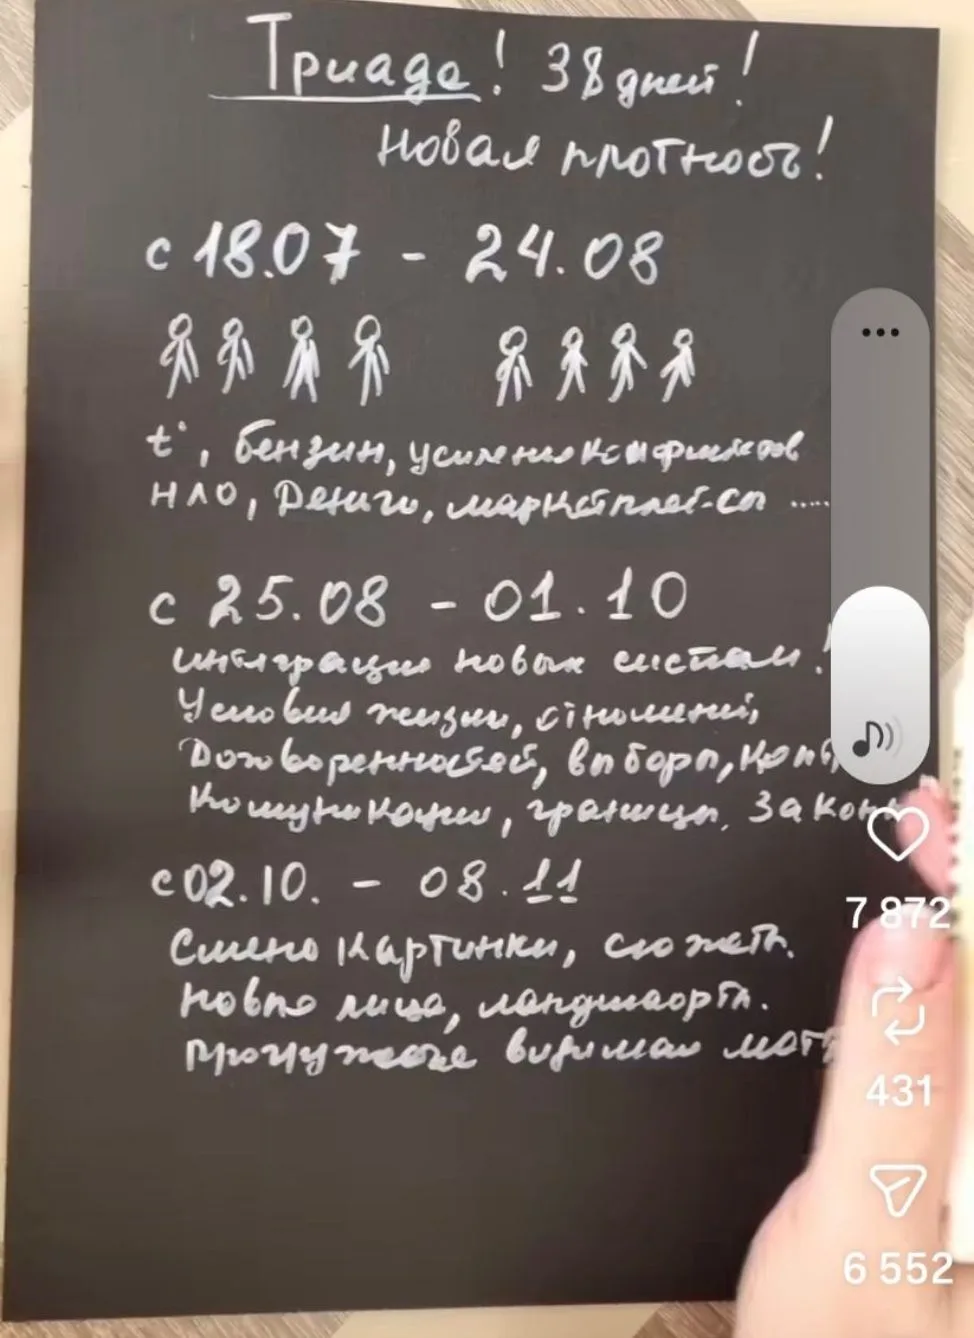 Триада! 38 дней!
Новая плотность!
с 18.07 - 24.08
t°, бензин, усиление конфликтов
НЛО, Деньги, маркетплейсы .....
с 25.08 - 01.10
интеграция новых систем!
Условия жизни, отношений,
Договоренностей, выборы,
Комуникации, границы, Закон
с 02.10. - 08.11
Смена картинки, сюжета.
Новые лица, ландшафты.
видимая
7 872
431
6 552